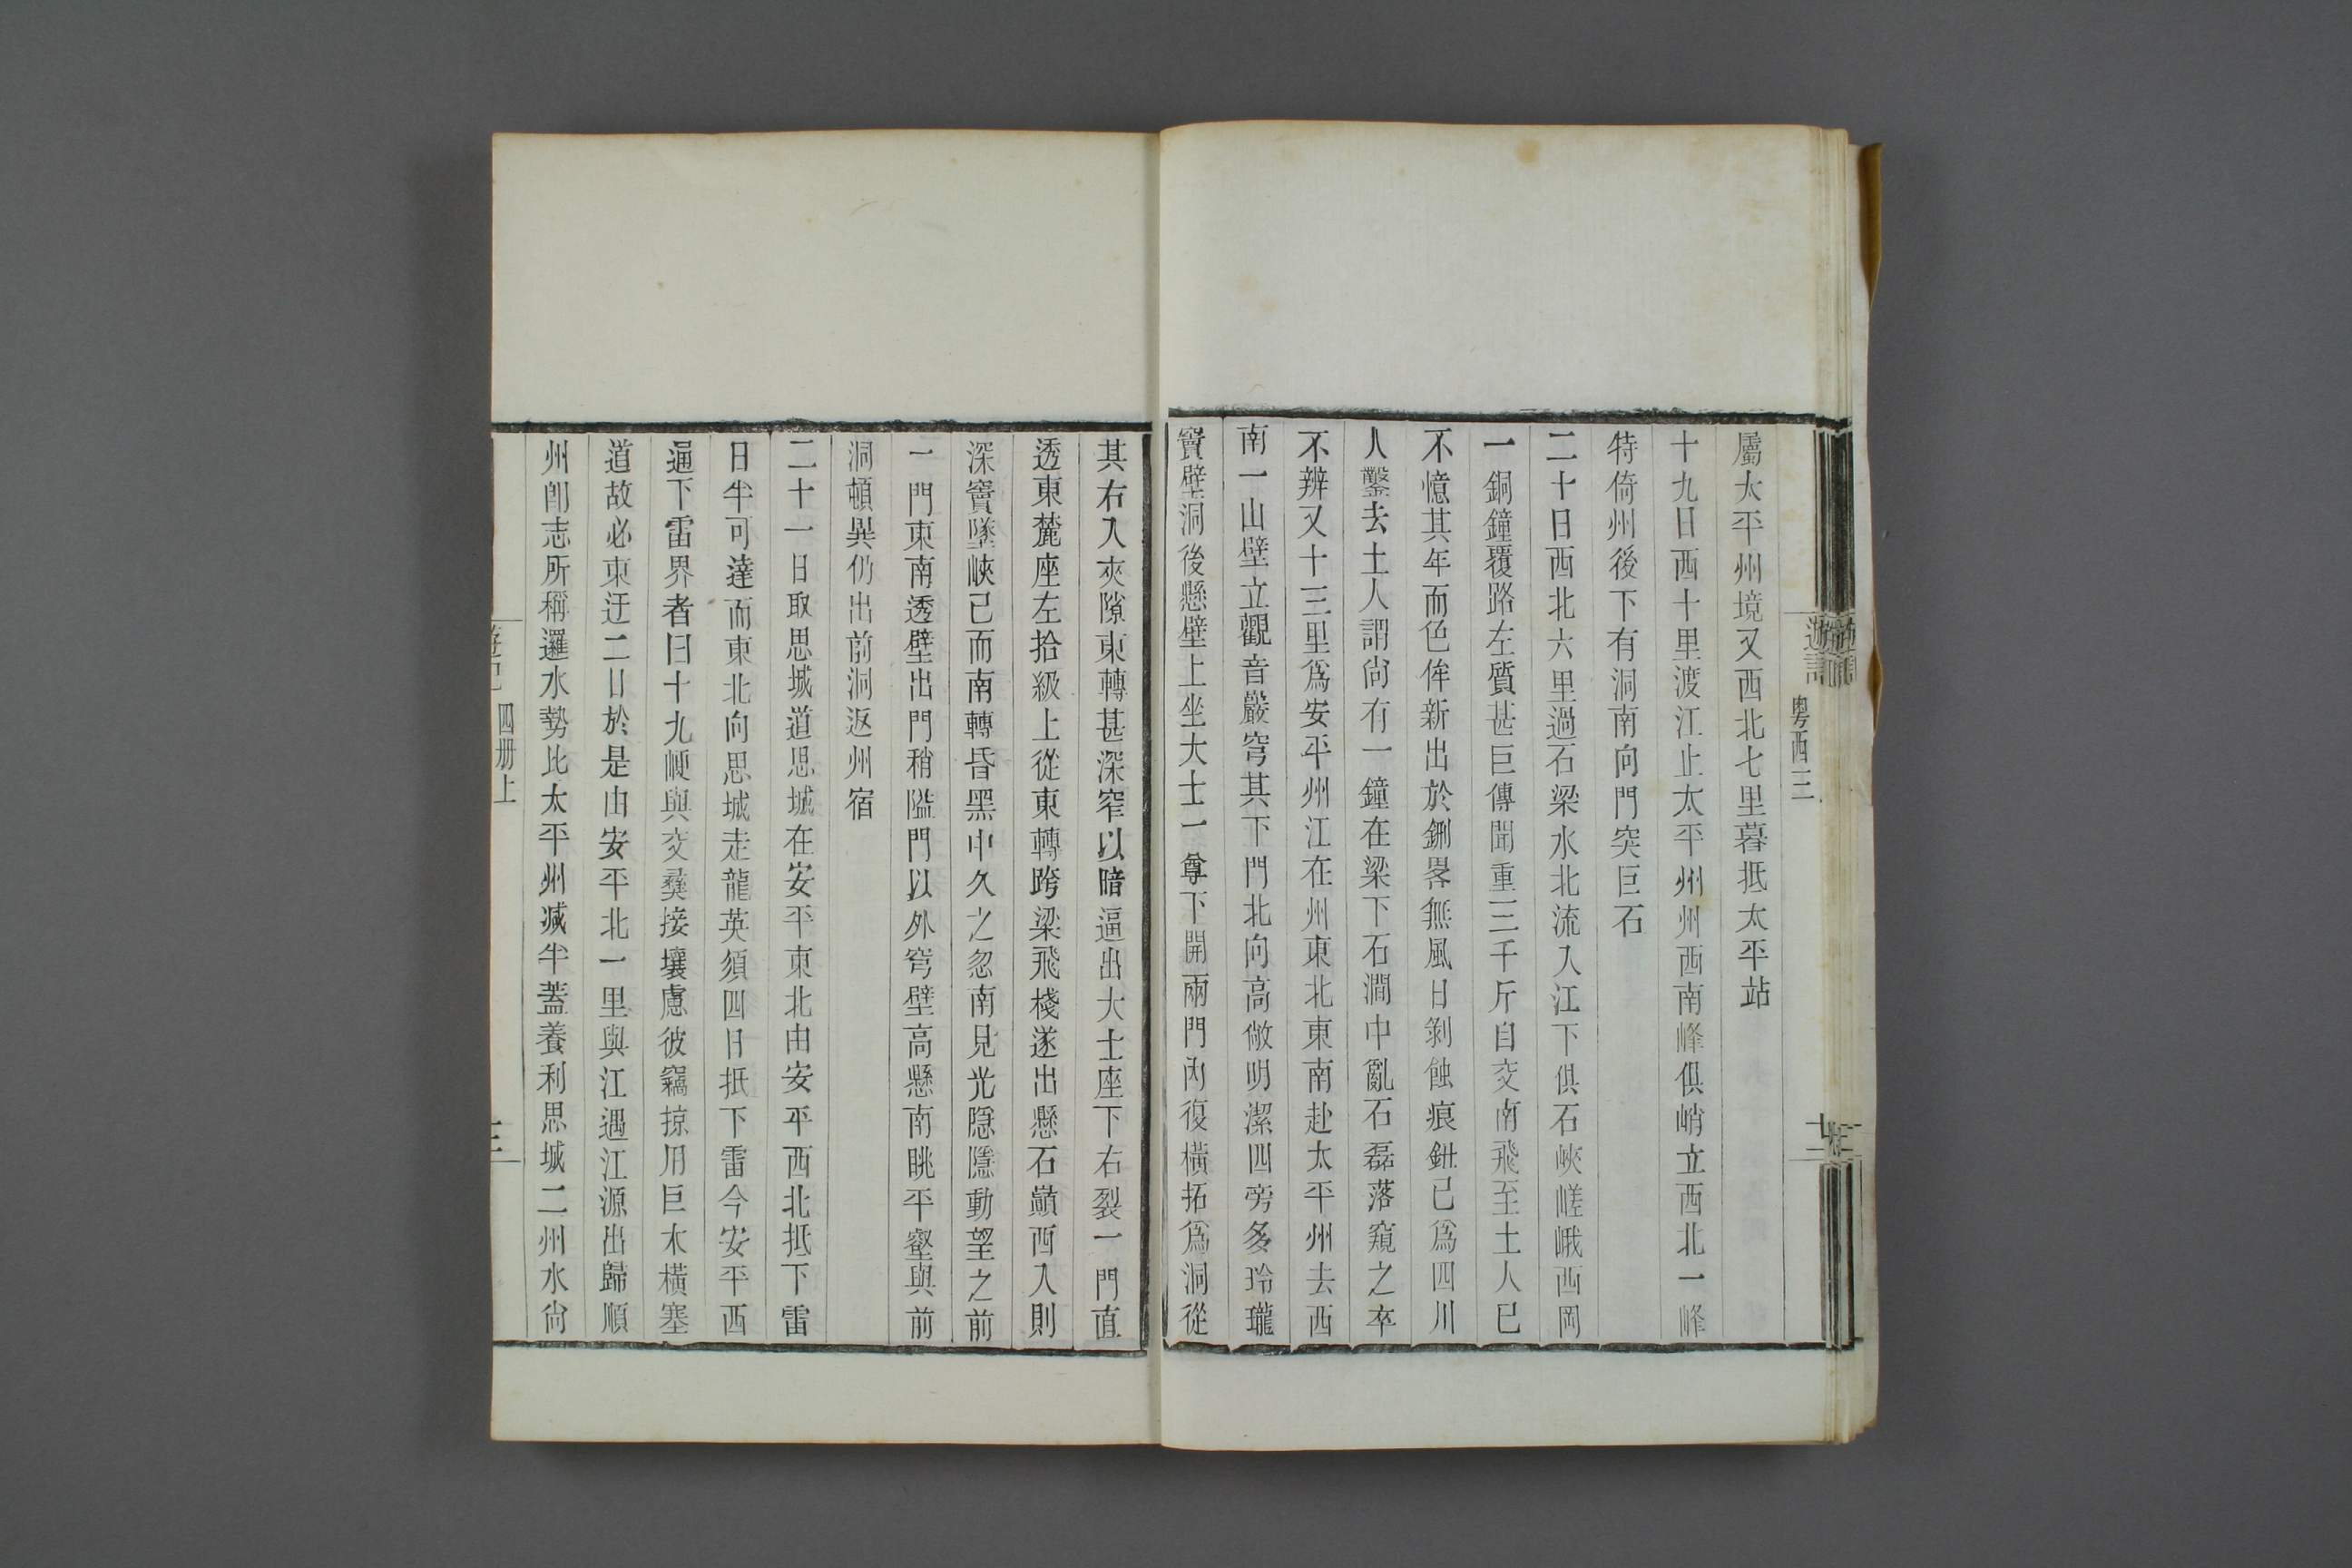 粤西三
屬太平州境又西北七里暮抵太平站
十九日西十里渡江止太平州州西南峰俱峭立西北一峰
特倚州後下有洞南向門突巨石
二十日西北六里過石梁水北流入江下俱石峽嵯峨西岡
一銅鐘覆路左質甚巨傳聞重三千斤自交南飛至土人巳
不憶其年而色侔新出於鉶畧無風日剝蝕痕鈕已爲四川
人鑿去土人謂尙有一鐘在梁下石澗中亂石磊落窺之卒
不辨又十三里爲安平州江在州東北東南赴太平州去西
南一山壁立觀音巖穹其下門北向高敞明潔四旁多玲瓏
竇壁洞後懸壁上坐大士一尊下開兩門內復橫拓爲洞從
其右入夾隙東轉甚深窄以暗逼出大士座下右裂一門直
透東麓座左拾級上從東轉跨梁飛棧遂出懸石巔西入則
深竇墜峽已而南轉昏黑中久之忽南見光隱隱動望之前
一門東南透壁出門稍隘門以外穹壁高懸南眺平壑與前
洞頓異仍出前洞返州宿
二十一日取思城道思城在安平東北由安平西北抵下雷
日半可達而東北向思城走龍英須四日抵下雷今安平西
逼下雷界者曰十九㟂與交彝接壤慮彼竊掠用巨木橫塞
道故必東迂二日於是由安平北一里與江遇江源出歸順
州卽志所稱邏水勢比太平州減半蓋養利思城二州水尙
遊記 四册上